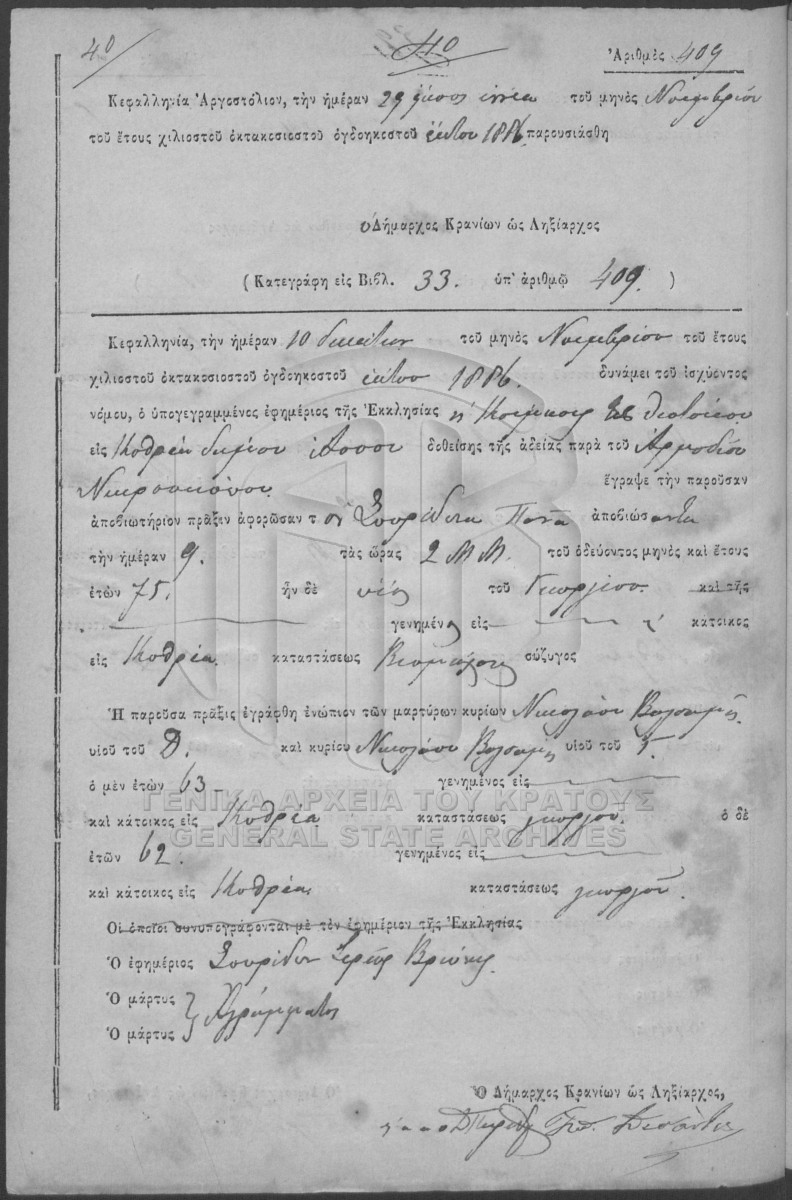 40 110 Ἀριθμὸς 409
Κεφαλληνία Ἀργοστόλιον, τὴν ἡμέραν 29 εἴκοσι ἐννέα τοῦ μηνὸς Νοεμβρίου
τοῦ ἔτους χιλιοστοῦ ὀκτακοσιοστοῦ ὀγδοηκοστοῦ ἕκτου 1886 παρουσιάσθη
ὁ Δήμαρχος Κρανίων ὡς Ληξίαρχος
( Κατεγράφη εἰς Βιβλ. 33. ὑπ' ἀριθμῷ 409. )
Κεφαλληνία, τὴν ἡμέραν 10 δεκάτην τοῦ μηνὸς Νοεμβρίου τοῦ ἔτους
χιλιοστοῦ ὀκτακοσιοστοῦ ὀγδοηκοστοῦ ἕκτου 1886. δυνάμει τοῦ ἰσχύοντος
νόμου, ὁ ὑπογεγραμμένος ἐφημέριος τῆς Ἐκκλησίας ἡ Κοίμησις τῆς Θεοτόκου
εἰς Κοθρέα δήμου δοθείσης τῆς ἀδείας παρὰ τοῦ Ἁρμοδίου
Νεκροσκόπου ἔγραψε τὴν παροῦσαν
ἀποβιωτήριον πρᾶξιν ἀφορῶσαν τὸν Σπυρίδωνα ἀποβιώσαντα
τὴν ἡμέραν 9. τὰς ὥρας 2 Μ Μ. τοῦ ὁδεύοντος μηνὸς καὶ ἔτους
ἐτῶν 75. ἦν δὲ υἱὸς τοῦ Γεωργίου. καὶ τῆς
γενημένος εἰς κάτοικος
εἰς Κοθρέα. καταστάσεως σύζυγος
Ἡ παροῦσα πρᾶξις ἐγράφθη ἐνώπιον τῶν μαρτύρων κυρίων Νικολάου Βαλσαμῆ
υἱοῦ τοῦ Δ. καὶ κυρίου Νικολάου Βαλσαμῆ υἱοῦ τοῦ Γ.
ὁ μὲν ἐτῶν 63 γενημένος εἰς
καὶ κάτοικος εἰς Κοθρέα καταστάσεως γεωργοῦ. ὁ δὲ
ἐτῶν 62. γενημένος εἰς
καὶ κάτοικος εἰς Κοθρέα καταστάσεως γεωργοῦ.
Οἱ ὁποῖοι συνυπογράφονται μὲ τὸν ἐφημέριον τῆς Ἐκκλησίας
Ὁ ἐφημέριος Σπυρίδων Ἱερεὺς
Ὁ μάρτυς } Ἀγράμματοι
Ὁ μάρτυς
Ὁ Δήμαρχος Κρανίων ὡς Ληξίαρχος,
ΓΕΝΙΚΑ ΑΡΧΕΙΑ ΤΟΥ ΚΡΑΤΟΥΣ
GENERAL STATE ARCHIVES